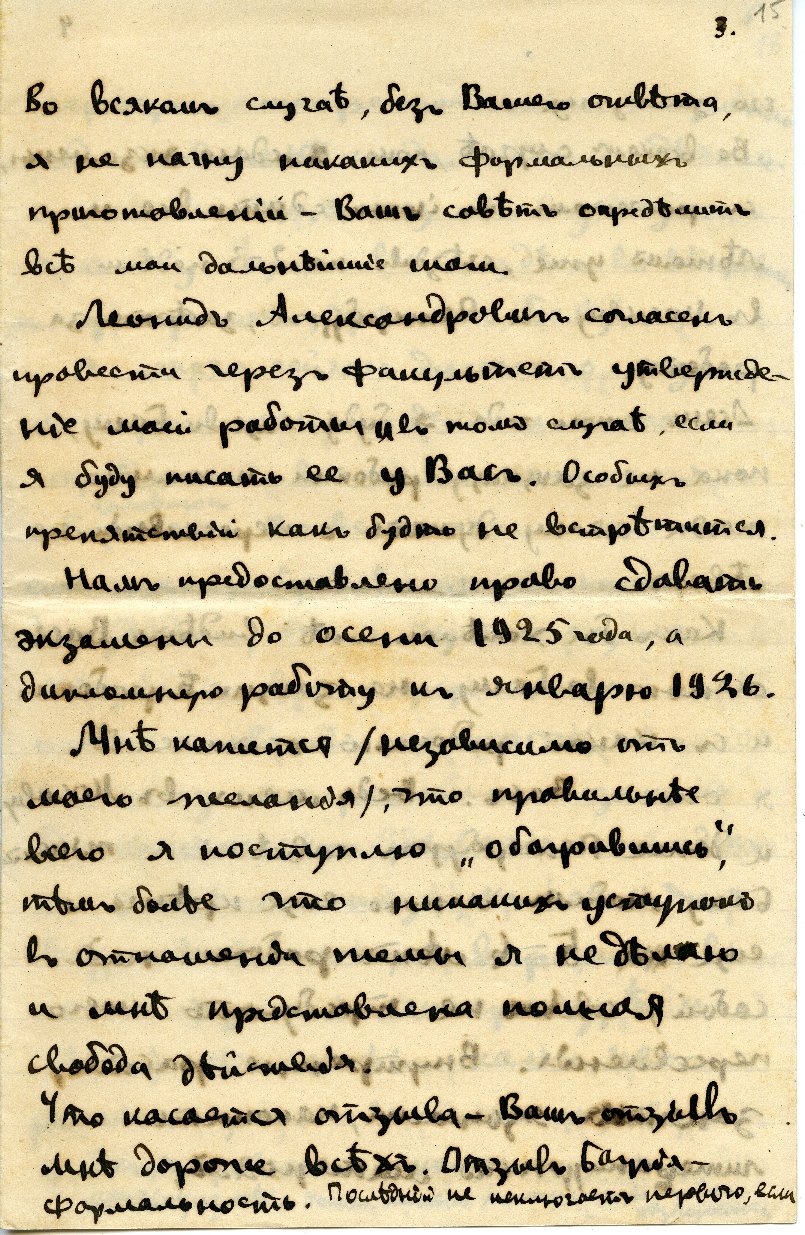 15
3.
Во всякомъ случаѣ, безъ Вашего отвѣта,
я не начну никакихъ формальныхъ
приготовленій – Вашъ совѣтъ опредѣлитъ
всѣ мои дальнѣйшіе шаги.
Леонидъ Александровичъ согласенъ
провести черезъ факультетъ утвержде-
ніе моей работы и въ томъ случаѣ, если
я буду писать ее у Васъ. Особыхъ
препятствій какъ будто не встрѣтится.
Намъ предоставлено право сдавать
экзамены до осени 1925 года, а
дипломную работу къ январю 1926.
Мнѣ кажется /независимо отъ
моего желанія/, что правильнѣе
всего я поступлю „обагривишсь“,
тѣмъ болѣе что никакихъ уступокъ
въ отношеніи темы я не дѣлаю
и мнѣ предоставлена полная
свобода дѣйствія.
Что касается отзыва – Вашъ отзывъ
мнѣ дороже всѣхъ. Отзывъ Багрія –
формальность. Послѣдній не исключаетъ перваго, если